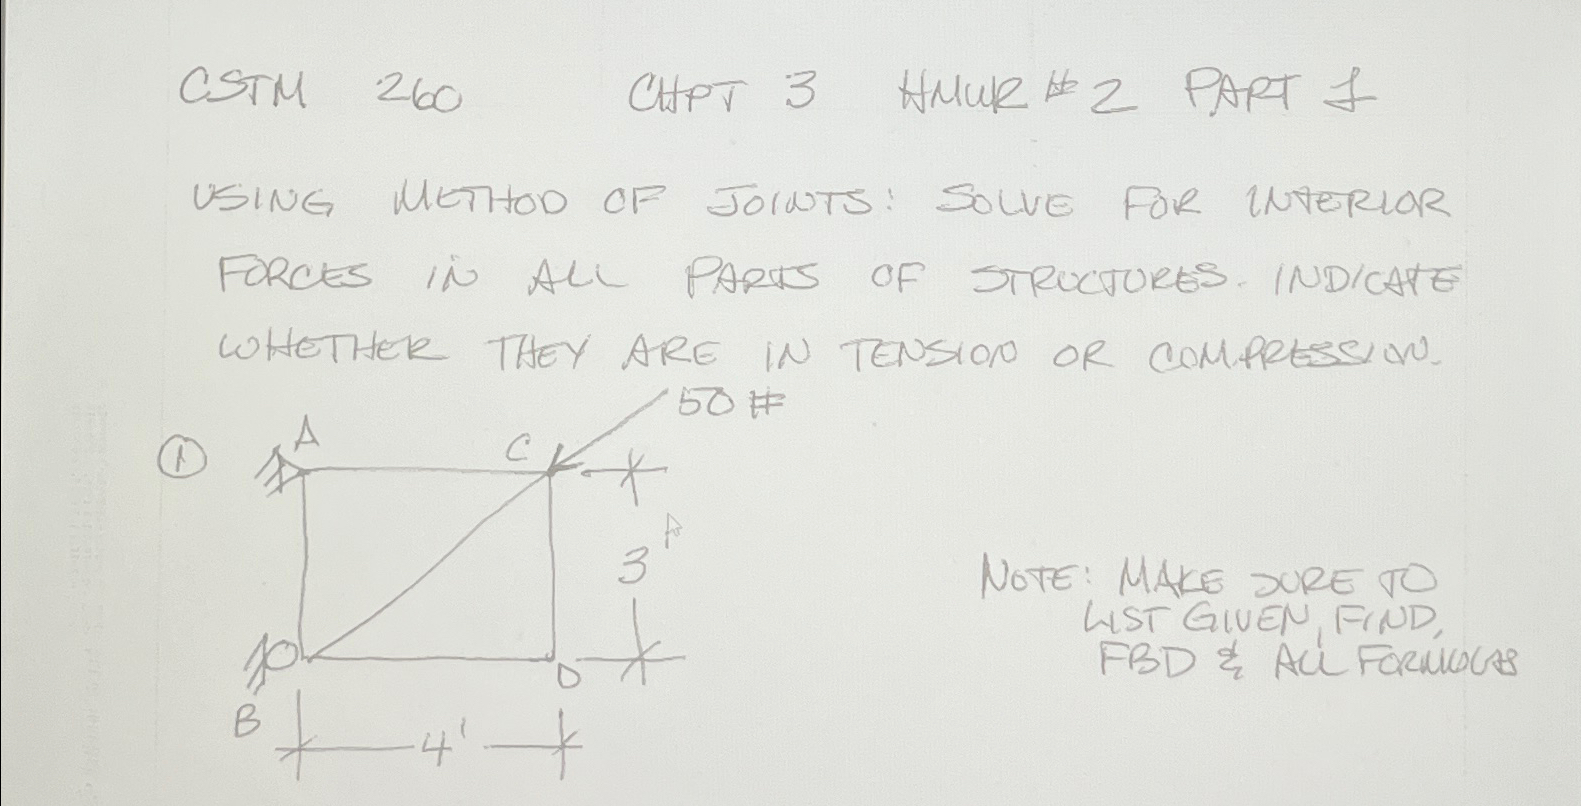 CSTM 260 CHPT 3 HMWR # 2 PART 1
USING METHOD OF JOINTS: SOLVE FOR INTERIOR
FORCES IN ALL PARTS OF STRUCTURES. INDICATE
WHETHER THEY ARE IN TENSION OR COMPRESSION.
50 #
1 A C
3'
NOTE: MAKE SURE TO
LIST GIVEN, FIND,
FBD & ALL FORMULAS
D
B
4'